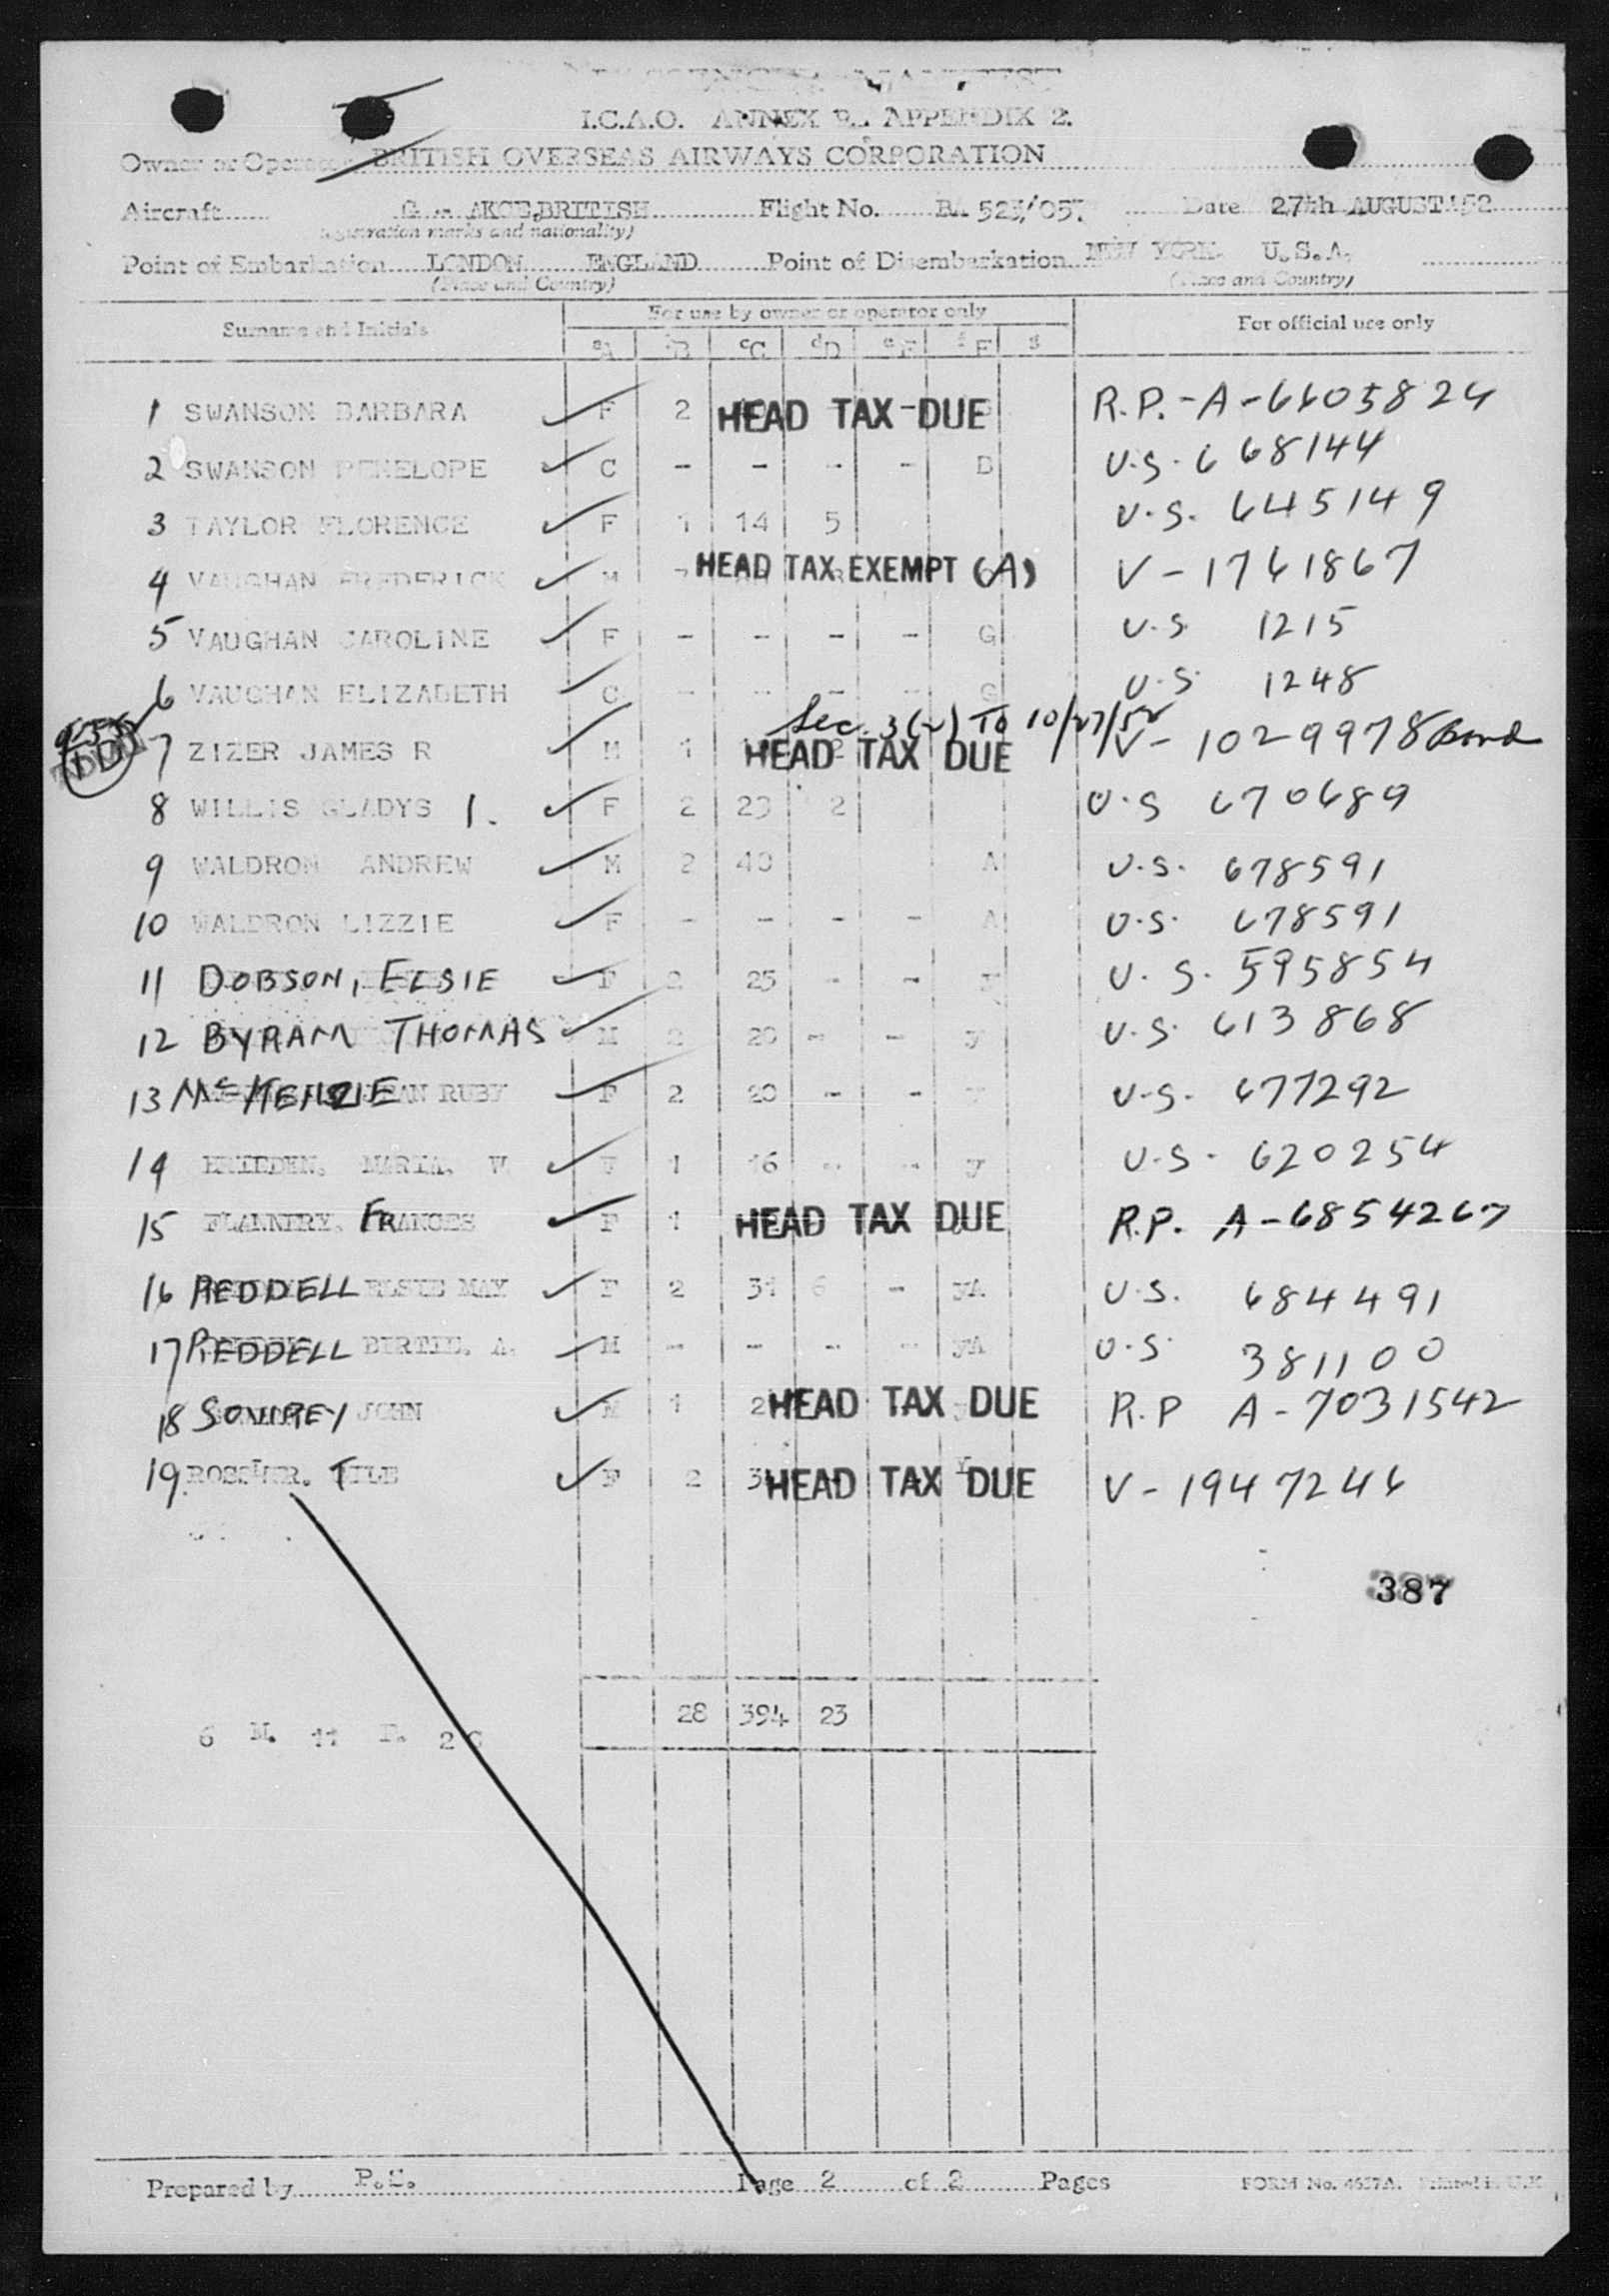 PASSENGER MANIFEST
I.C.A.O. ANNEX 9. APPENDIX 2.
Owner or Operator BRITISH OVERSEAS AIRWAYS CORPORATION
Aircraft G - BRITISH Flight No. BA 523/057 Date 27th AUGUST '52
(Registration marks and nationality)
Point of Embarkation LONDON ENGLAND Point of Disembarkation NEW YORK U.S.A.
(Place and Country) (Place and Country)
Surname and Initials For use by owner or operator only For official use only
a A b B c C d D e E f F g
1 SWANSON BARBARA F 2 HEAD TAX DUE R.P. - A-6605824
2 SWANSON PENELOPE C - - - - B U.S. 668144
3 TAYLOR FLORENCE F 1 14 5 U.S. 645149
4 VAUGHAN FREDERICK M HEAD TAX EXEMPT (A) V - 1761867
5 VAUGHAN CAROLINE F - - - - G U.S. 1215
6 VAUGHAN ELIZABETH C - - - - G U.S. 1248
Sec. 3(2) To 10/27/52
7 ZIZER JAMES R M 1 HEAD TAX DUE V - 1029978 Bond
8 WILLIS GLADYS I. F 2 23 2 U.S 670689
9 WALDRON ANDREW M 2 40 A U.S. 678591
10 WALDRON LIZZIE F - - - - A U.S. 678591
11 DOBSON, ELSIE F 2 25 - - y U.S. 595854
12 BYRAM THOMAS M 2 20 - - y U.S. 613868
13 McKENZIE JEAN RUBY F 2 20 - - y U.S. 677292
14 MARIA. W F 1 16 - - y U.S. 620254
15 FLANNERY. FRANCES F 1 HEAD TAX DUE R.P. A-6854267
16 REDDELL ELSIE MAY F 2 31 6 - yA U.S. 684491
17 REDDELL BERTIE. A. M - - - - yA U.S. 381100
18 JOHN M 1 2 HEAD TAX DUE R.P A-7031542
19 F 2 3 HEAD TAX DUE V - 1947246
387
28 394 23
6 M. 11 F. 2 C
Prepared by Page 2 of 2 Pages FORM No. 4637A. Printed in U.K.